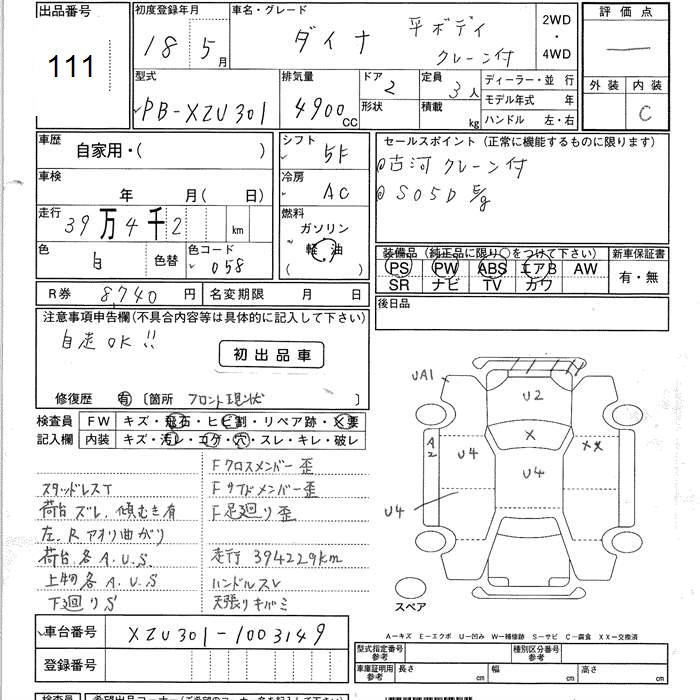 出品番号
111
初度登録年月
18 5月
車名・グレード
ダイナ 平ボディ
クレーン付
2WD
・
4WD
評価点
—
外装 内装
C
型式
PB-XZU301
排気量
4900cc
ドア 2
形状
定員 3人
積載 kg
ディーラー・並行
モデル年式 年
ハンドル 左・右
車歴
自家用・( )
車検
年 月( 日)
走行
39万4千2 km
色 白 色替
色コード 058
シフト
5F
冷房
AC
燃料
ガソリン
軽油
( )
セールスポイント(正常に機能するものに限ります)
古河クレーン付
S05D
装備品(純正品に限り○をつけて下さい)
PS PW ABS エアB AW
SR ナビ TV カワ
新車保証書
有・無
R券 8,740円
名変期限 月 日
後日品
注意事項申告欄(不具合内容等は具体的に記入して下さい)
自走OK!!
初出品車
修復歴 有 〔箇所 フロント現状 〕
検査員
記入欄
FW キズ・飛石・ヒビ割・リペア跡・X要
内装 キズ・汚レ・コゲ・穴・スレ・キレ・破レ
スタッドレスT
荷台ズレ、傾むき有
左、Rアオリ曲がり
荷台各A.U.S
上物各A.U.S
下廻りS
Fクロスメンバー歪
Fサイドメンバー歪
F足廻り歪
走行394229km
ハンドルスレ
天張りキバミ
UA1
U2
X
XX
A2
U4
U4
U4
スペア
A-キズ E-エクボ U-凹み W-補修跡 S-サビ C-腐食 XX-交換済
車台番号 XZU301-1003149
登録番号
型式指定番号
参考
種別区分番号
参考
車庫証明用
参考
長さ cm 幅 cm 高さ cm